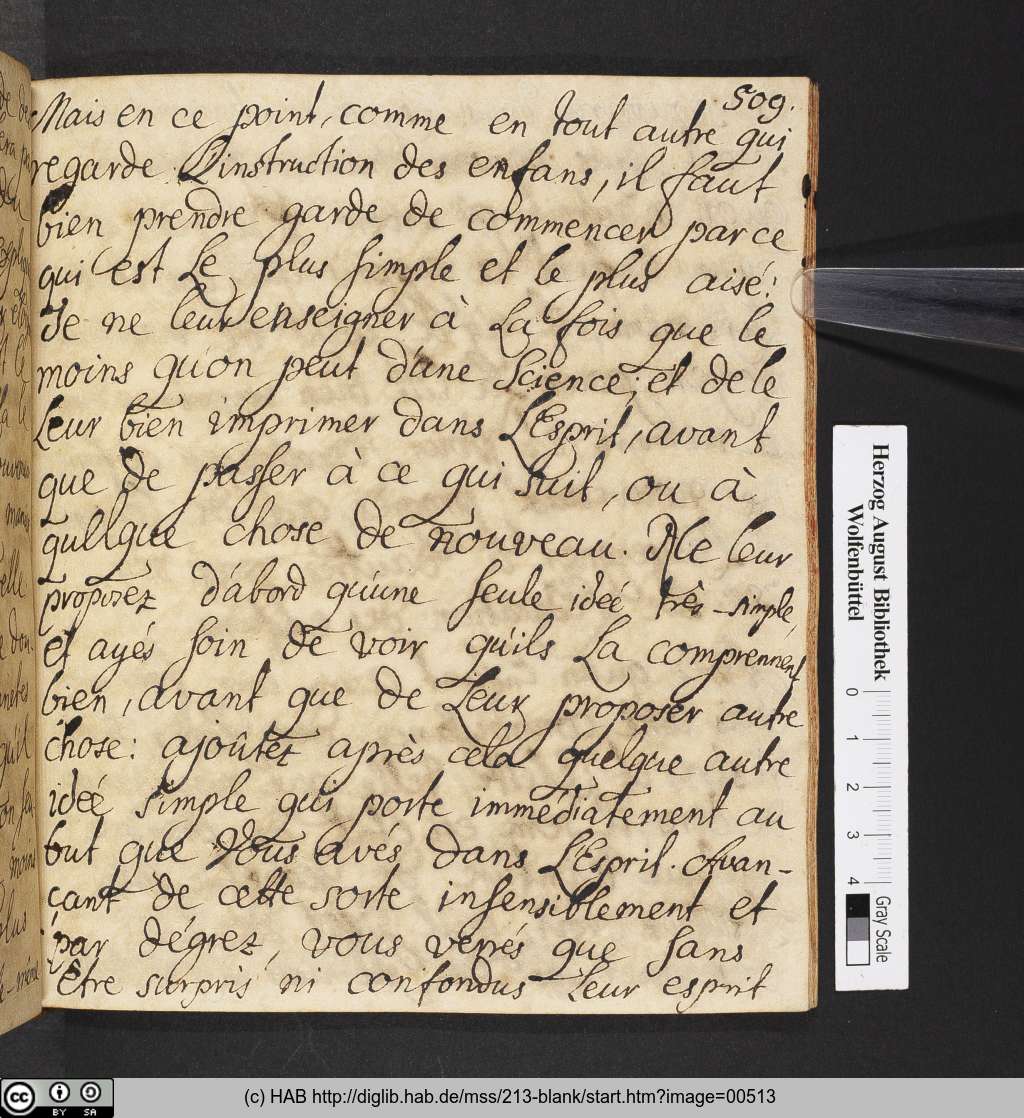 509.
Mais en ce point, comme en tout autre qui
regarde L'instruction des enfans, il faut
bien prendre garde de commencer par ce
qui est Le plus simple et le plus aisé:
de ne leur enseigner à La fois que le
moins qu'on peut d'une Science; et de le
Leur bien imprimer dans L'Esprit, avant
que de passer à ce qui suit, ou à
qullque chose de nouveau. Ne leur
proposez d'abord qu'une seule idée très-simple,
et ayés soin de voir qu'ils La comprennent
bien, avant que de Leur proposer autre
chose: ajoûtez après cela quelque autre
idée simple qui porte immédiatement au
but que Vous avés dans L'Esprit. Avan-
çant de cette sorte insensiblement et
par dégrez, vous verrés que sans
être surpris ni confondus Leur esprit
Herzog August Bibliothek
Wolfenbüttel
0 1 2 3 4
Gray Scale
cc BY SA
(c) HAB http://diglib.hab.de/mss/213-blank/start.htm?image=00513